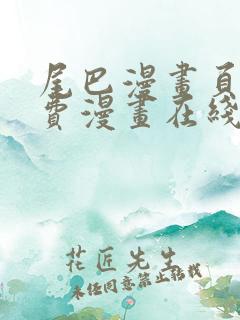 尾巴漫畫頁
費漫畫在綫
花匠先生
未经同意禁止转载